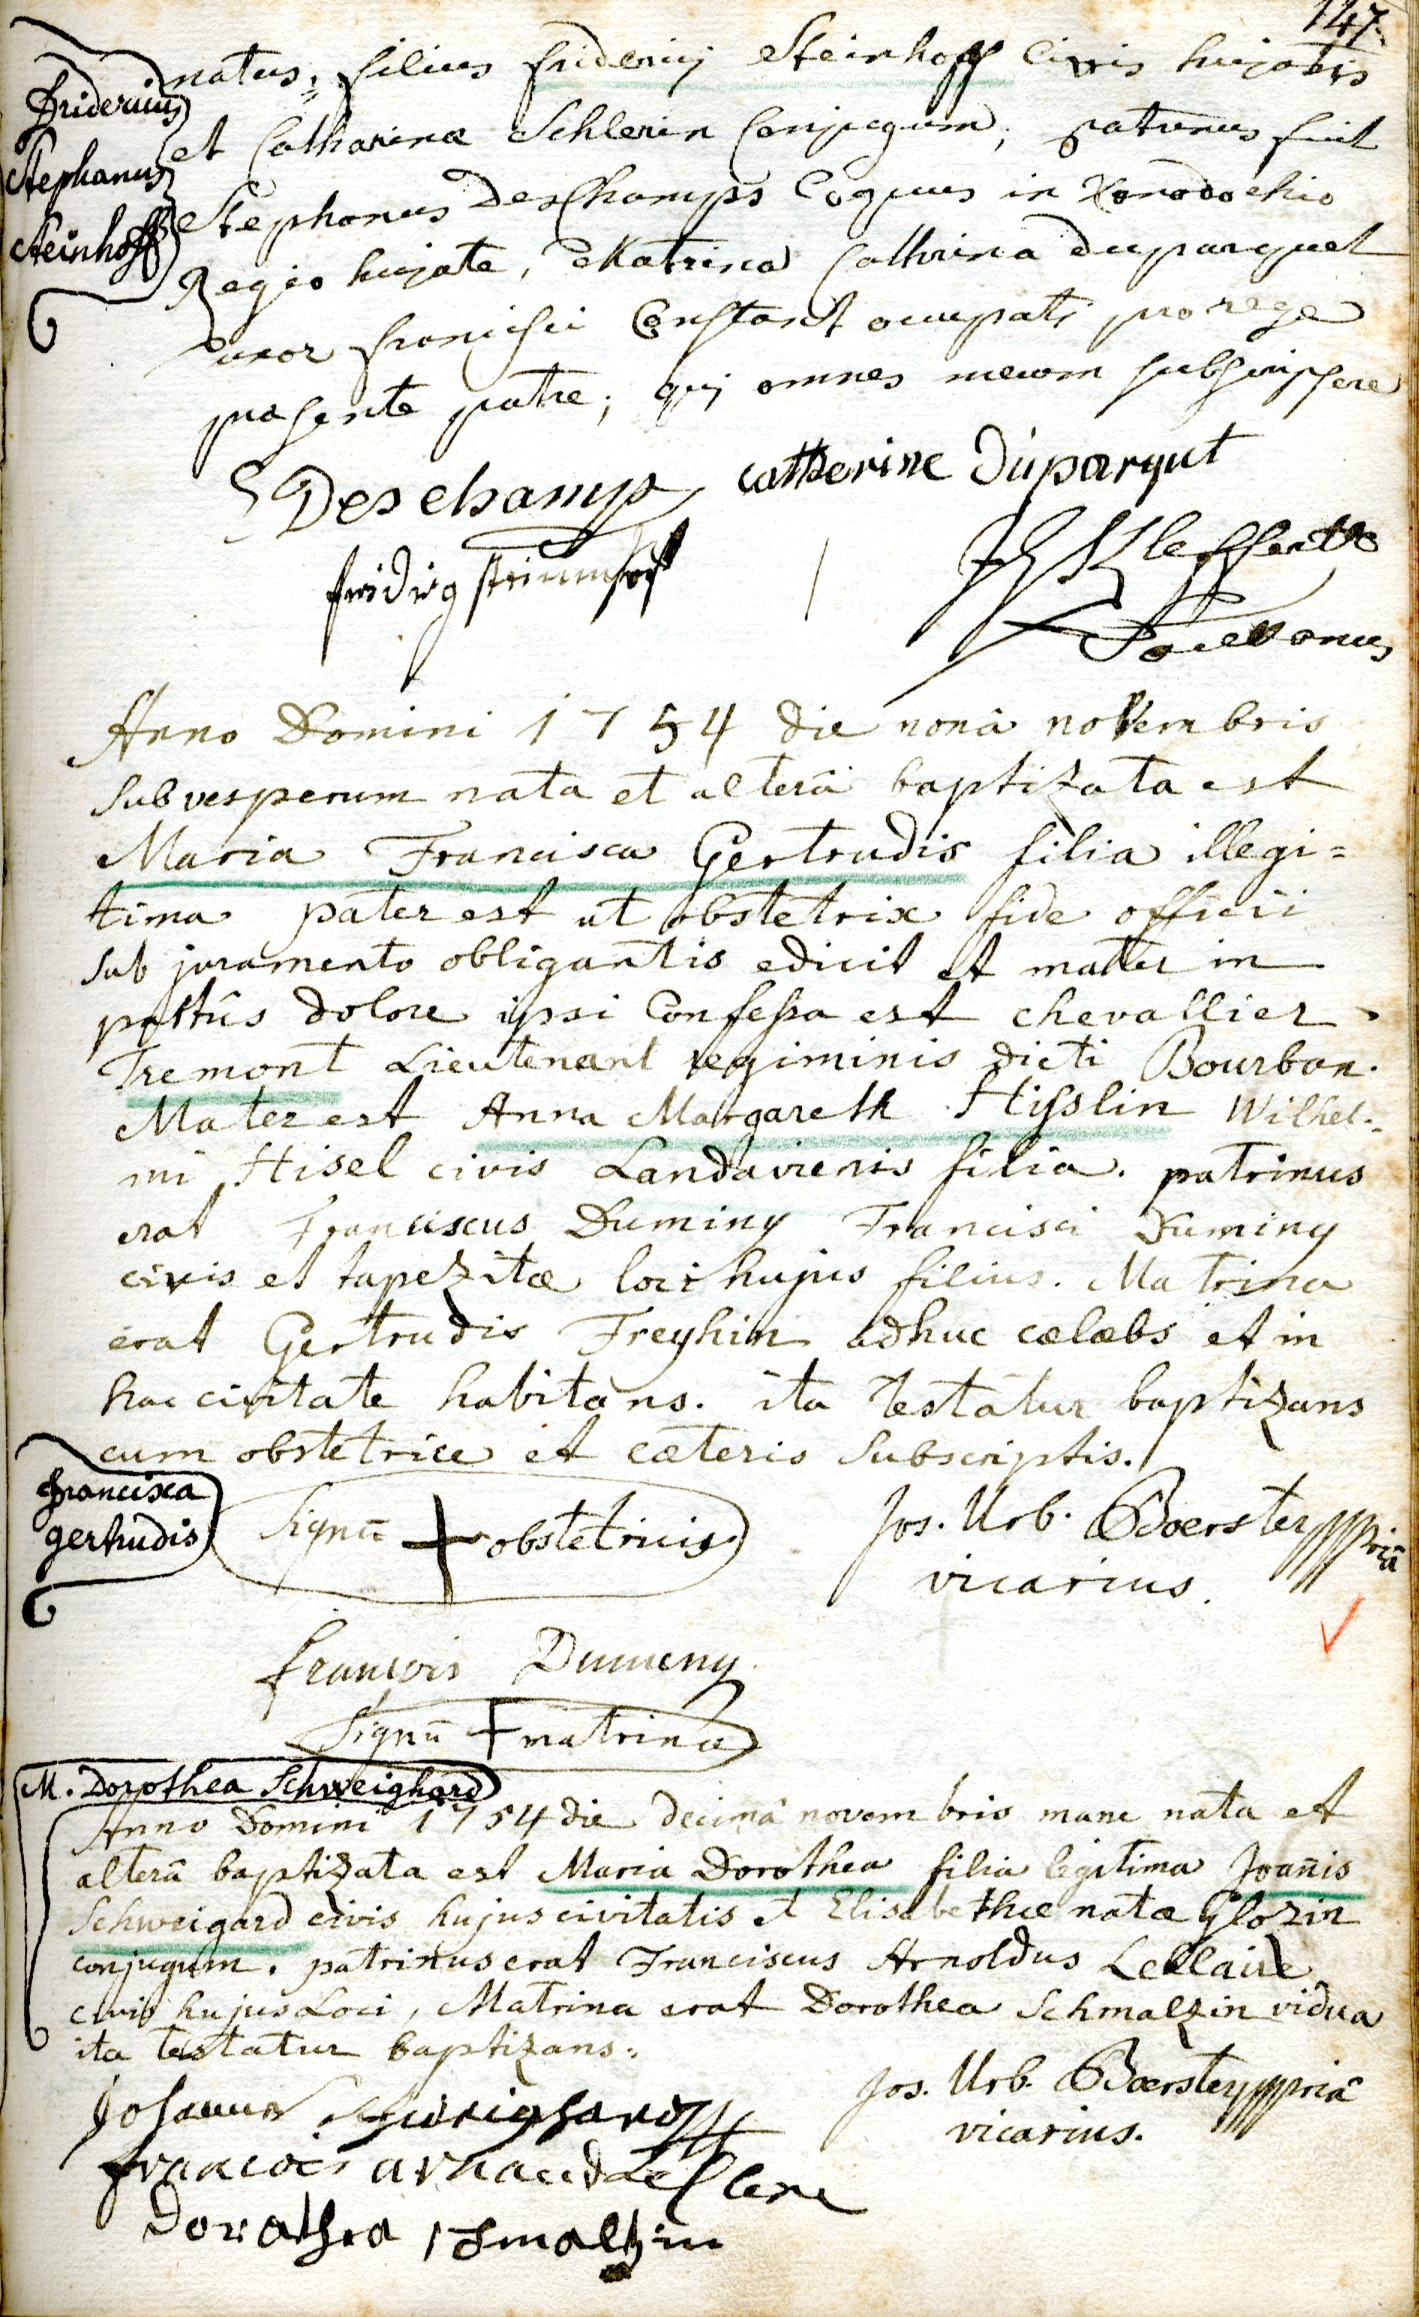 147.
Fridericus
Stephanus
Steinhoff
natus, filius friderici Steinhoff Civis hujatis
et Catharinæ Schlerin Conjugum; patrinus fuit
Stephanus DesChamps Coquus in Xenodochio
Regio hujate, Matrina Cathrina duparquet
uxor francisci Constant occupati pro rege
præsente patre; qui omnes mecum subscripsere
Deschamps catherine Duparqut
fridrig
Anno Domini 1754 die nonâ novembris
sub vesperum nata et alterâ baptizata est
Maria Francisca Gertrudis filia illegi=
tima pater est ut obstetrix fide officii
sub juramento obligantis edicit et mater in
partûs dolore ipsi Confessa est chevallier
Tremont Lieutenant regiminis dicti Bourbon.
Mater est Anna Margareth Hisslin Wilhel=
mi Hisel civis Landaviensis filia. patrinus
erat Franciscus Duminy Francisci Duminy
civis et tapezitæ loci hujus filius. Matrina
erat Gertrudis Freyhin adhuc cælebs et in
hac civitate habitans. ita testatur baptizans
cum obstetrice et cæteris subscriptis.
francisca
gertrudis
Signū + obstetricis
Jos. Urb. Boerster pppriâ
vicarius.
françois Dumeny
Signū + matrinæ
M. Dorothea Schweighard
Anno Domini 1754 die decimâ novembris mane nata et
alterâ baptizata est Maria Dorothea filia legitima Joan̄is
Schweigard civis hujus civitatis et Elisabethæ natæ Glozin
conjugum. patrinus erat Franciscus Arnoldus Leclaire
civis hujus Loci, Matrina erat Dorothea Schmalzin vidua
ita testatur baptizans.
Jos. Urb. Boerster pppriâ
vicarius.
Johannes Schweighard
francois arnaud Leclere
Dorathea schmaltzin